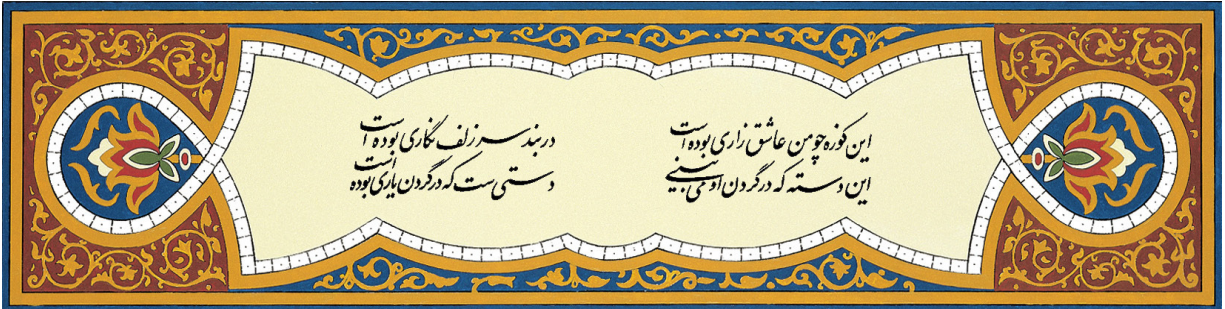 این کوزه چو من عاشق زاری بوده است در بند سر زلف نگاری بوده است
این دسته که در گردن او می بینی دستی ست که در گردن یاری بوده است